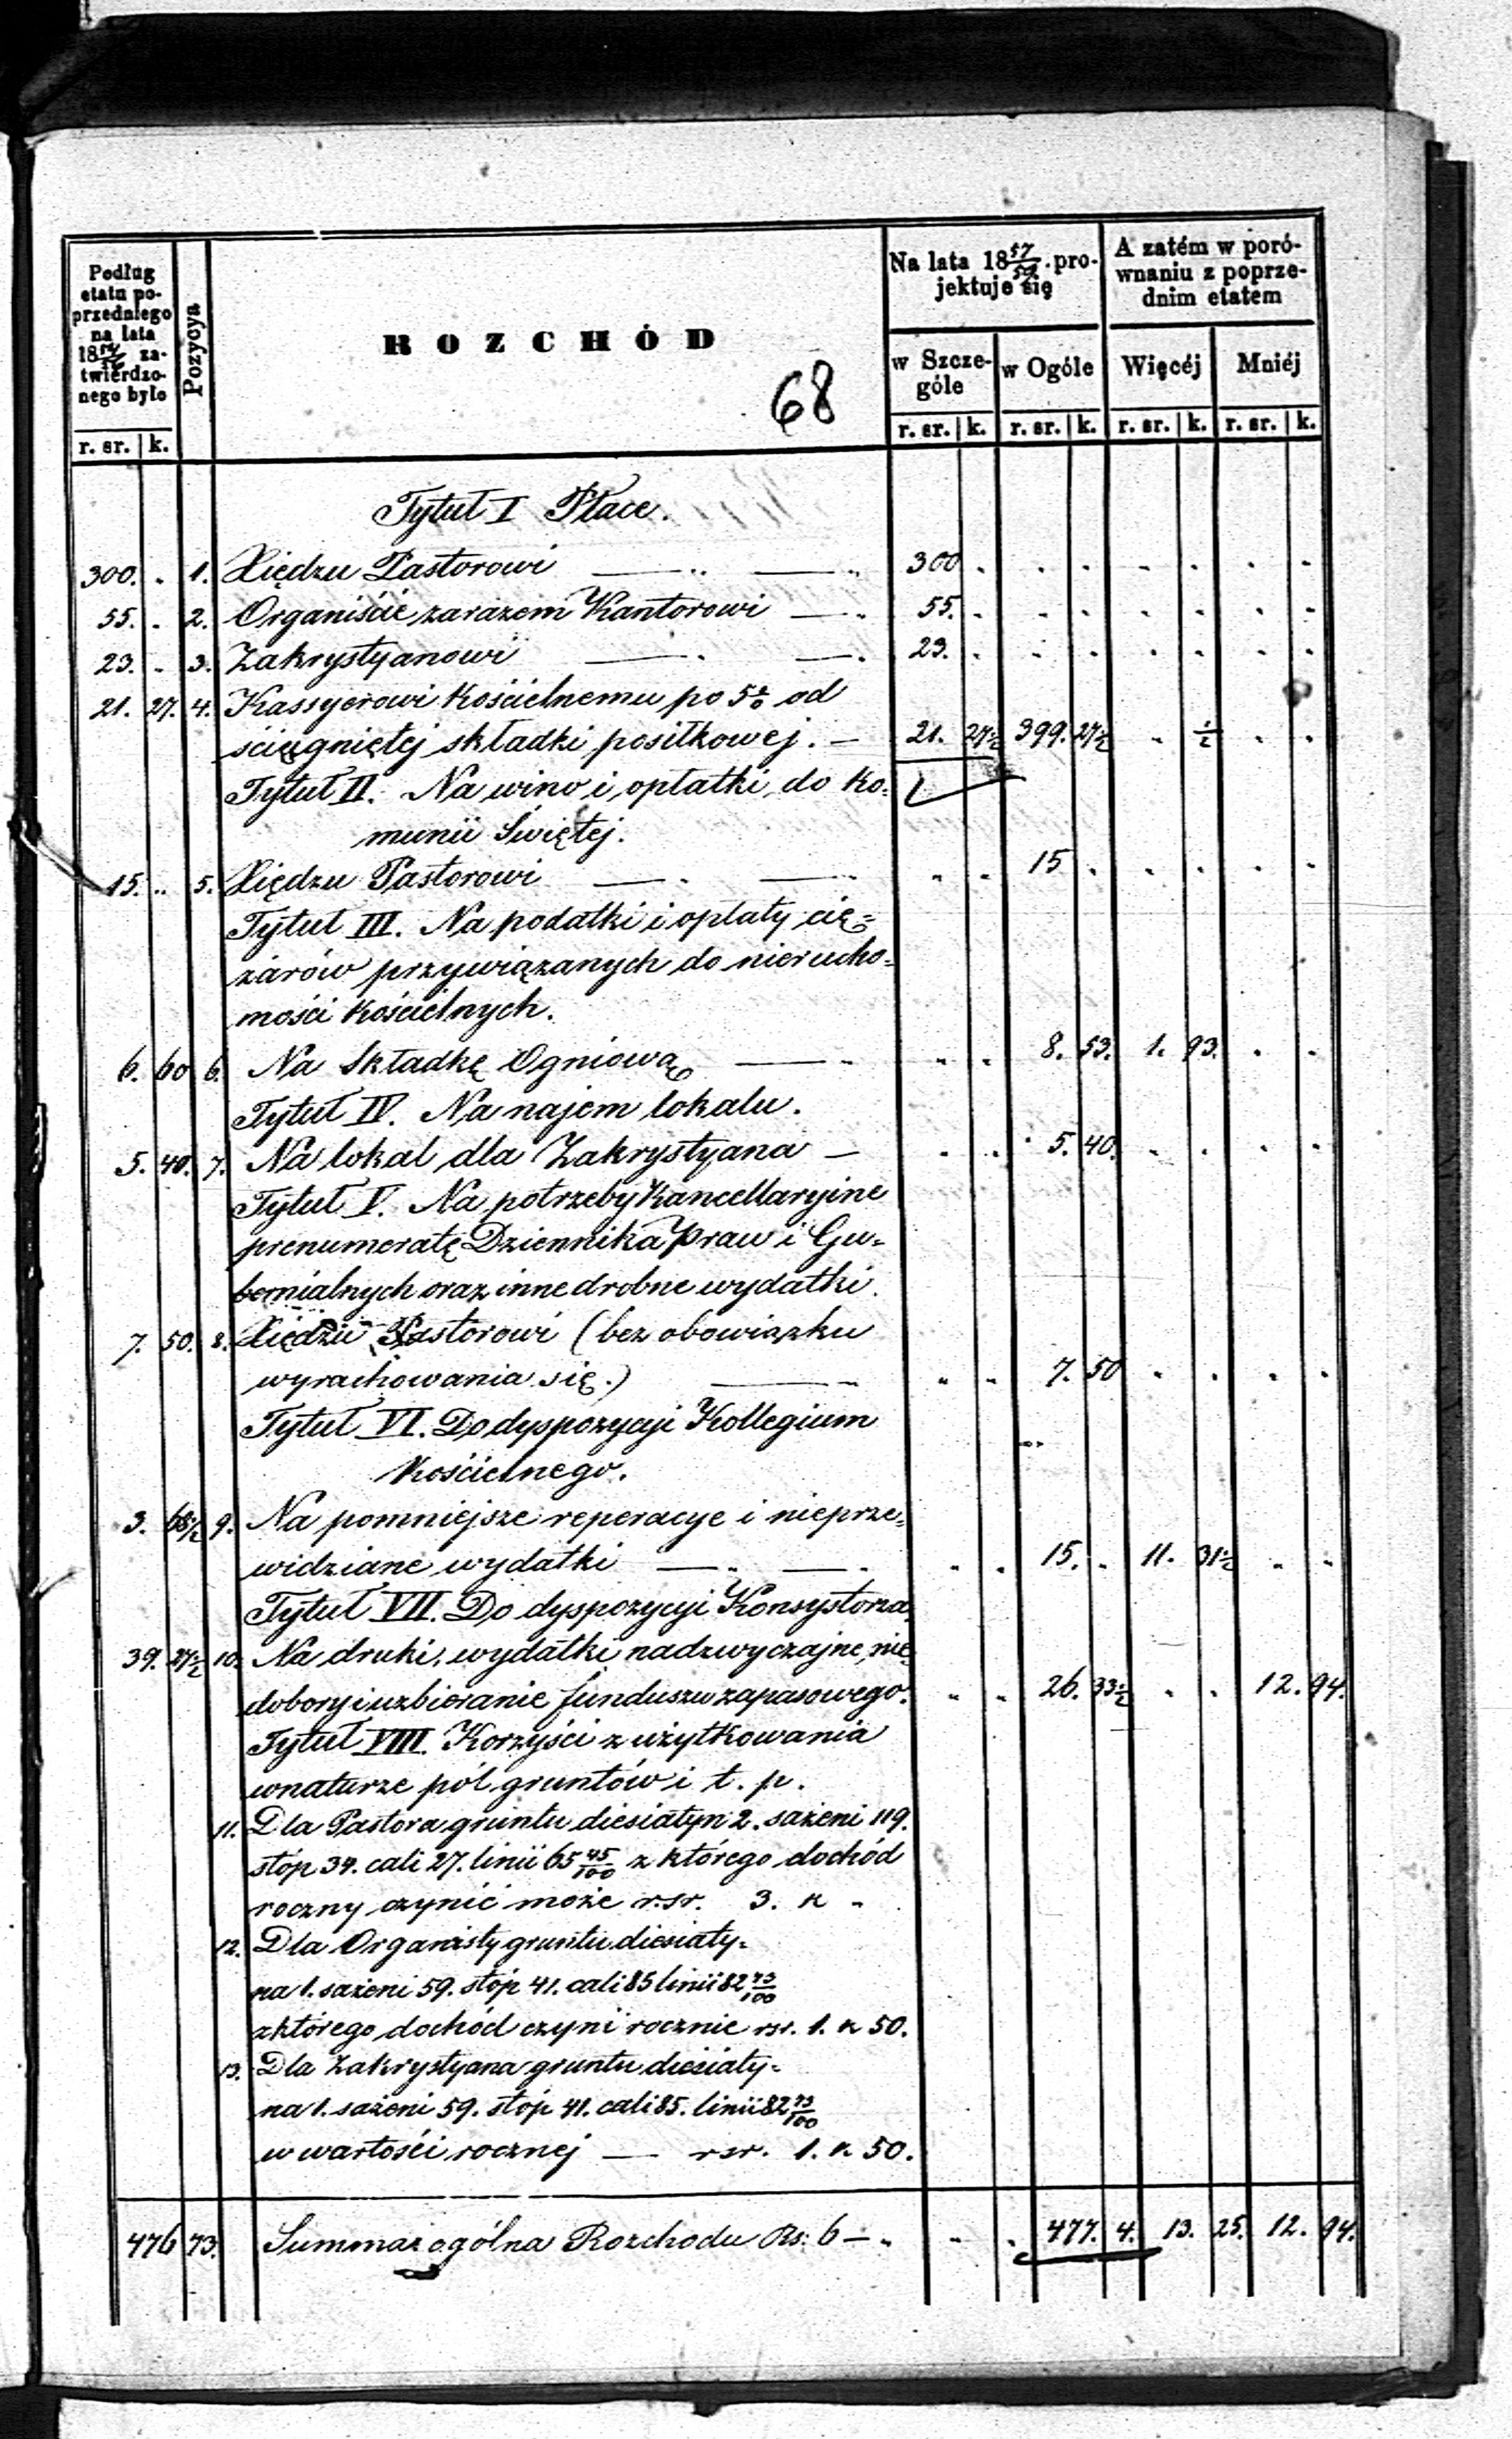 Podług
etatu po-
przedniego
na lata
18 54/56 za-
twierdzo-
nego było
r. sr. | k.
Pozycya
ROZCHÓD
68
Na lata 18 57/59 pro-
jektuje się
w Szcze-
góle
w Ogóle
r. sr. | k. r. sr. | k.
A zatém w poró-
wnaniu z poprze-
dnim etatem
Więcéj Mniéj
r. sr. | k. r. sr. | k.
Tytuł I Płace.
300. . 1. Xiędzu Pastorowi 300 .
55. . 2. Organiście zarazem Kantorowi 55. .
23. . 3. Zakrystyanowi 23. .
21. 27. 4. Kassyerowi Kościelnemu po 5% od
ściągniętej składki posiłkowej. — 21. 27½ 399. 27½ . ½
Tytuł II. Na wino i opłatki do Ko-
munii Świętej.
15. .. 5. Xiędzu Pastorowi 15 .
Tytuł III. Na podatki i opłaty cię-
żarów przywiązanych do nierucho-
mości Kościelnych.
6. 60 6. Na Składkę Ogniową 8. 53. 1. 93.
Tytuł IV. Na najem lokalu.
5. 40. 7. Na lokal dla Zakrystyana — 5. 40.
Tytuł V. Na potrzeby Kancellaryine
prenumeratę Dziennika Praw i Gu-
bernialnych oraz inne drobne wydatki.
7. 50. 8. Xiędzu Pastorowi (bez obowiązku
wyrachowania się.) 7. 50
Tytuł VI. Do dyspozycyi Kollegium
Kościelnego.
3. 68½ 9. Na pomniejsze reperacye i nieprze-
widziane wydatki 15. . 11. 31½
Tytuł VII. Do dyspozycyi Konsystorza
39. 27½ 10. Na druki, wydatki nadzwyczajne, nie-
dobory i uzbieranie funduszu zapasowego. 26. 33½ . . 12. 94.
Tytuł VIII. Korzyści z użytkowania
w naturze pól gruntów i t. p.
11. Dla Pastora gruntu diesiatyn 2. sażeni 119.
stóp 34. cali 27. linii 65 45/100 z którego dochód
roczny czynić może r.sr. 3. k „
12. Dla Organisty gruntu diesiaty-
na 1. sażeni 59. stóp 41. cali 85 linii 82 73/100
z którego dochód czyni rocznie rsr. 1. k 50.
13. Dla Zakrystyana gruntu diesiaty-
na 1. sażeni 59. stóp 41. cali 85. linii 82 73/100
w wartości rocznej — rsr. 1. k 50.
476 73. Summa ogólna Rozchodu Rs: 6 — . 477. 4. 13. 25. 12. 94.